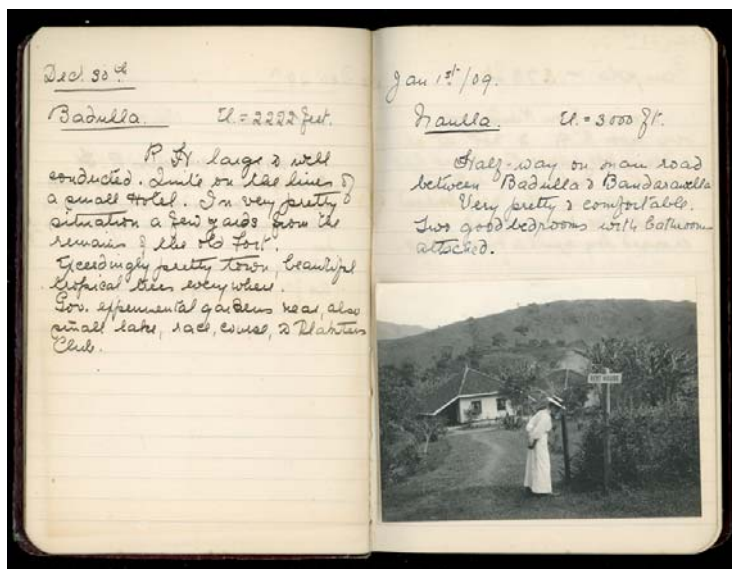 Dec. 30th
Badulla. El. = 2222 feet.
R H large & well
conducted. Quite on the lines of
a small Hotel. In very pretty
situation a few yards from the
remains of the old Fort.
Exceedingly pretty town, beautiful
tropical trees everywhere.
Gov. experimental gardens near, also
small lake, race, course, & Planters
Club.
Jan 1st/09.
El. = 3000 ft.
Half-way on main road
between Badulla & Bandarawella
Very pretty & comfortable.
Two good bedrooms with bathrooms
attached.
REST HOUSE